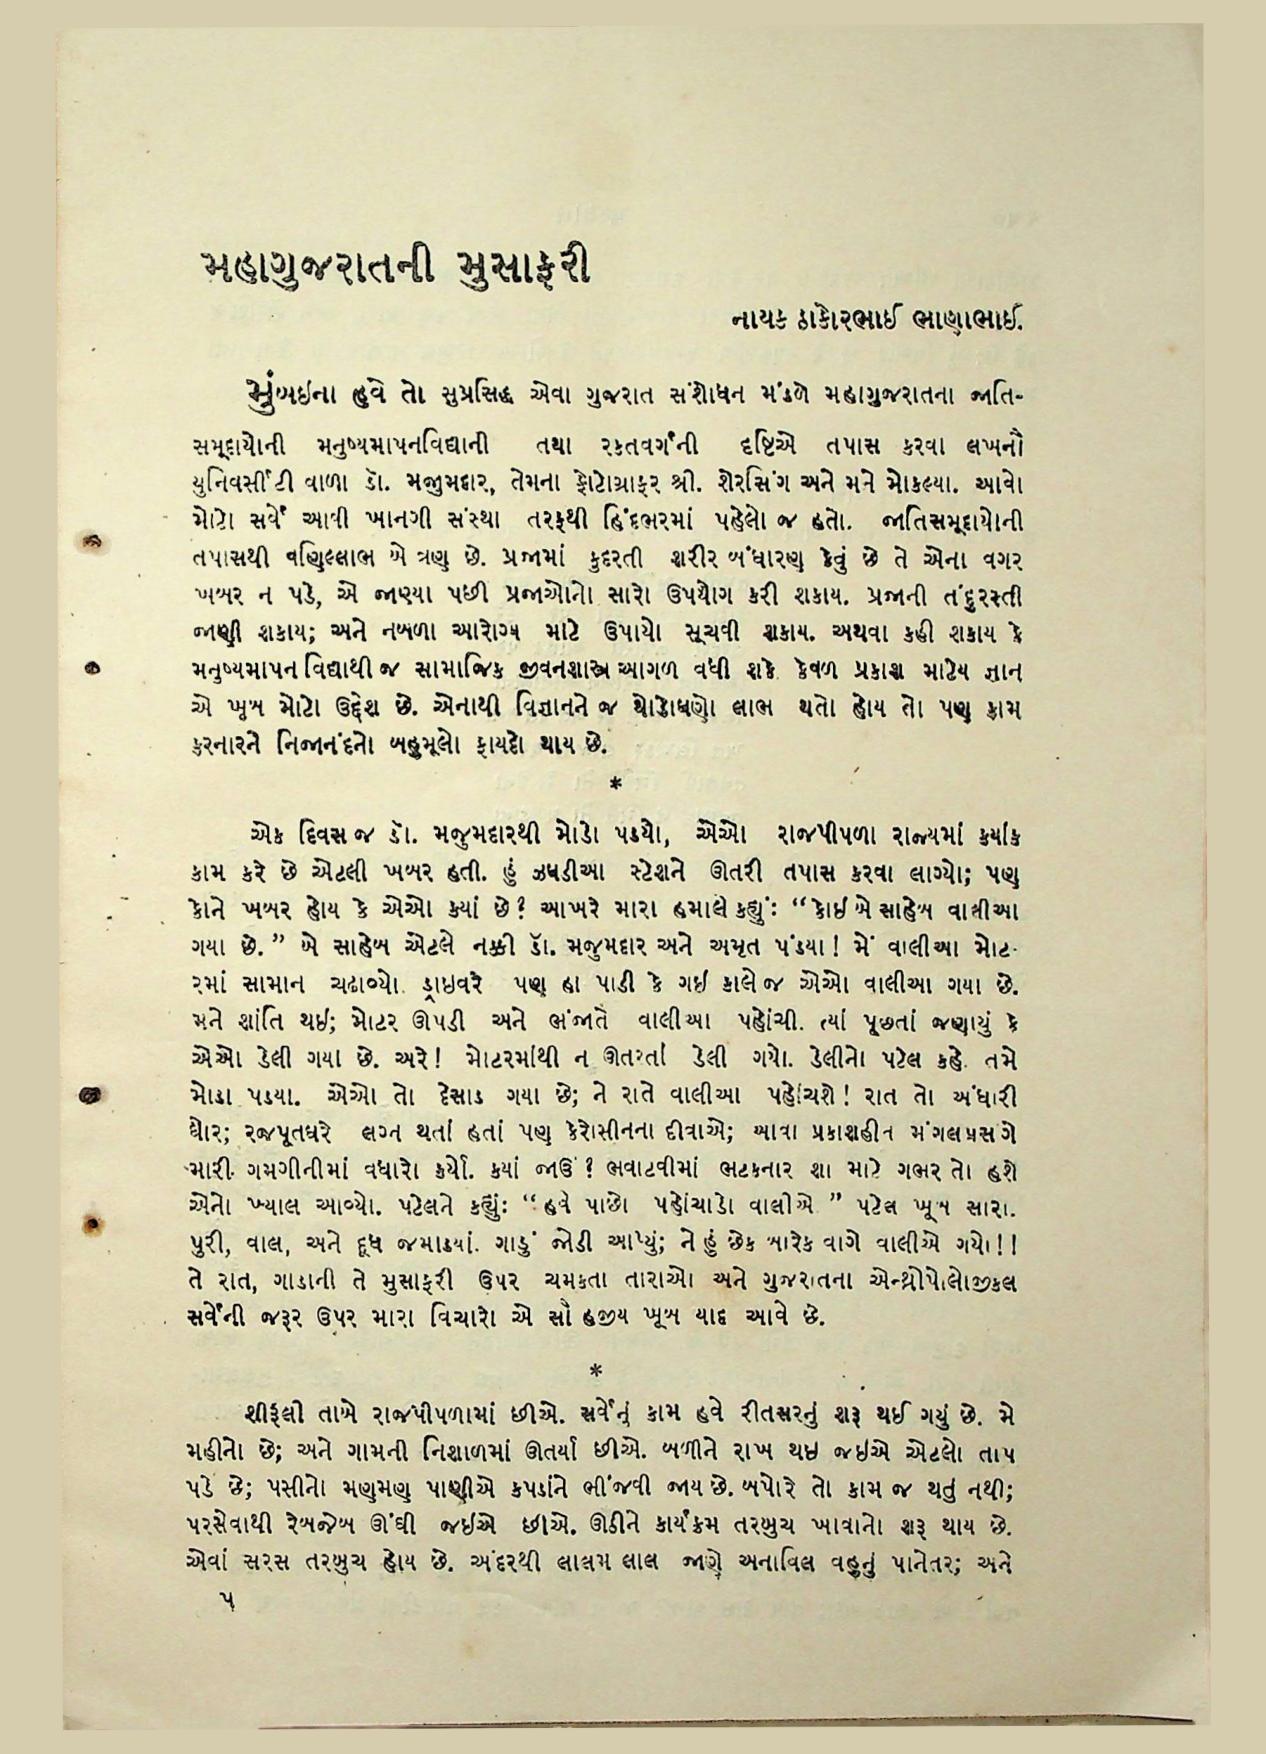 મહાગુજરાતની મુસાફરી
નાયક ઠાકોરભાઈ ભાણાભાઈ.
મુંબઇના હવે તો સુપ્રસિદ્ધ એવા ગુજરાત સંશોધન મંડળે મહાગુજરાતના જાતિ-
સમૂદાયોની મનુષ્યમાપનવિદ્યાની તથા રક્તવર્ગની દૃષ્ટિએ તપાસ કરવા લખનૌ
યુનિવર્સીટી વાળા ડૉ. મજુમદાર, તેમના ફોટોગ્રાફર શ્રી. શેરસિંગ અને મને મોકલ્યા. આવો
મોટો સર્વે આવી ખાનગી સંસ્થા તરફથી હિંદભરમાં પહેલો જ હતો. જાતિસમૂદાયોની
તપાસથી વણિલ્લાભ બે ત્રણ છે. પ્રજામાં કુદરતી શરીર બંધારણ કેવું છે તે એના વગર
ખબર ન પડે, એ જાણ્યા પછી પ્રજાઓનો સારો ઉપયોગ કરી શકાય. પ્રજાની તંદુરસ્તી
જાણી શકાય; અને નબળા આરોગ્ય માટે ઉપાયો સૂચવી શકાય. અથવા કહી શકાય કે
મનુષ્યમાપન વિદ્યાથી જ સામાજિક જીવનશાસ્ત્ર આગળ વધી શકે કેવળ પ્રકાશ માટેય જ્ઞાન
એ ખૂબ મોટો ઉદ્દેશ છે. એનાથી વિજ્ઞાનને જ થોડોઘણો લાભ થતો હોય તો પણ કામ
કરનારને નિજાનંદનો બહુમૂલો ફાયદો થાય છે.
*
એક દિવસ જ ડૉ. મજુમદારથી મોડો પડયો, એઓ રાજપીપળા રાજ્યમાં કયાંક
કામ કરે છે એટલી ખબર હતી. હું ઝઘડીઆ સ્ટેશને ઊતરી તપાસ કરવા લાગ્યો; પણ
કોને ખબર હોય કે એઓ કયાં છે? આખરે મારા હમાલે કહ્યું: “કોઇ બે સાહેબ વાલીઆ
ગયા છે.” બે સાહેબ એટલે નક્કી ડૉ. મજુમદાર અને અમૃત પંડયા! મેં વાલીઆ મોટ-
રમાં સામાન ચઢાવ્યો. ડ્રાઇવરે પણ હા પાડી કે ગઇ કાલે જ એઓ વાલીઆ ગયા છે.
મને શાંતિ થઇ; મોટર ઊપડી અને ભંજાતે વાલીઆ પહોંચી. ત્યાં પૂછતાં જણાયું કે
એઓ ડેલી ગયા છે. અરે! મોટરમાંથી ન ઊતરતાં ડેલી ગયો. ડેલીનો પટેલ કહે તમે
મોડા પડયા. એઓ તો દેસાડ ગયા છે; ને રાતે વાલીઆ પહોંચશે! રાત તો અંધારી
ઘોર; રજપૂતઘરે લગ્ન થતાં હતાં પણ કેરોસીનના દીવાએ; આવા પ્રકાશહીન મંગલપ્રસંગે
મારી ગમગીનીમાં વધારો કર્યો. કયાં જાઉં? ભવાટવીમાં ભટકનાર શા માટે ગભર તો હશે
એનો ખ્યાલ આવ્યો. પટેલને કહ્યું: “હવે પાછો પહોંચાડો વાલીએ” પટેલ ખૂબ સારા.
પુરી, વાલ, અને દૂધ જમાડયાં. ગાડું જોડી આપ્યું; ને હું છેક બારેક વાગે વાલીએ ગયો!!
તે રાત, ગાડાની તે મુસાફરી ઉપર ચમકતા તારાઓ અને ગુજરાતના એન્થ્રોપોલોજીકલ
સર્વેની જરૂર ઉપર મારા વિચારો એ સૌ હજીય ખૂબ યાદ આવે છે.
*
શીફલી તાબે રાજપીપળામાં છીએ. સર્વેનું કામ હવે રીતસરનું શરૂ થઈ ગયું છે. મે
મહીનો છે; અને ગામની નિશાળમાં ઊતર્યા છીએ. બળીને રાખ થઇ જઇએ એટલો તાપ
પડે છે; પસીનો મણમણ પાણીએ કપડાંને ભીંજવી જાય છે. બપોરે તો કામ જ થતું નથી;
પરસેવાથી રેબઝેબ ઊંઘી જઈએ છીએ. ઊઠીને કાર્યક્રમ તરબુચ ખાવાનો શરૂ થાય છે.
એવાં સરસ તરબુચ હોય છે. અંદરથી લાલમ લાલ જાણે અનાવિલ વહુનું પાનેતર; અને
૫